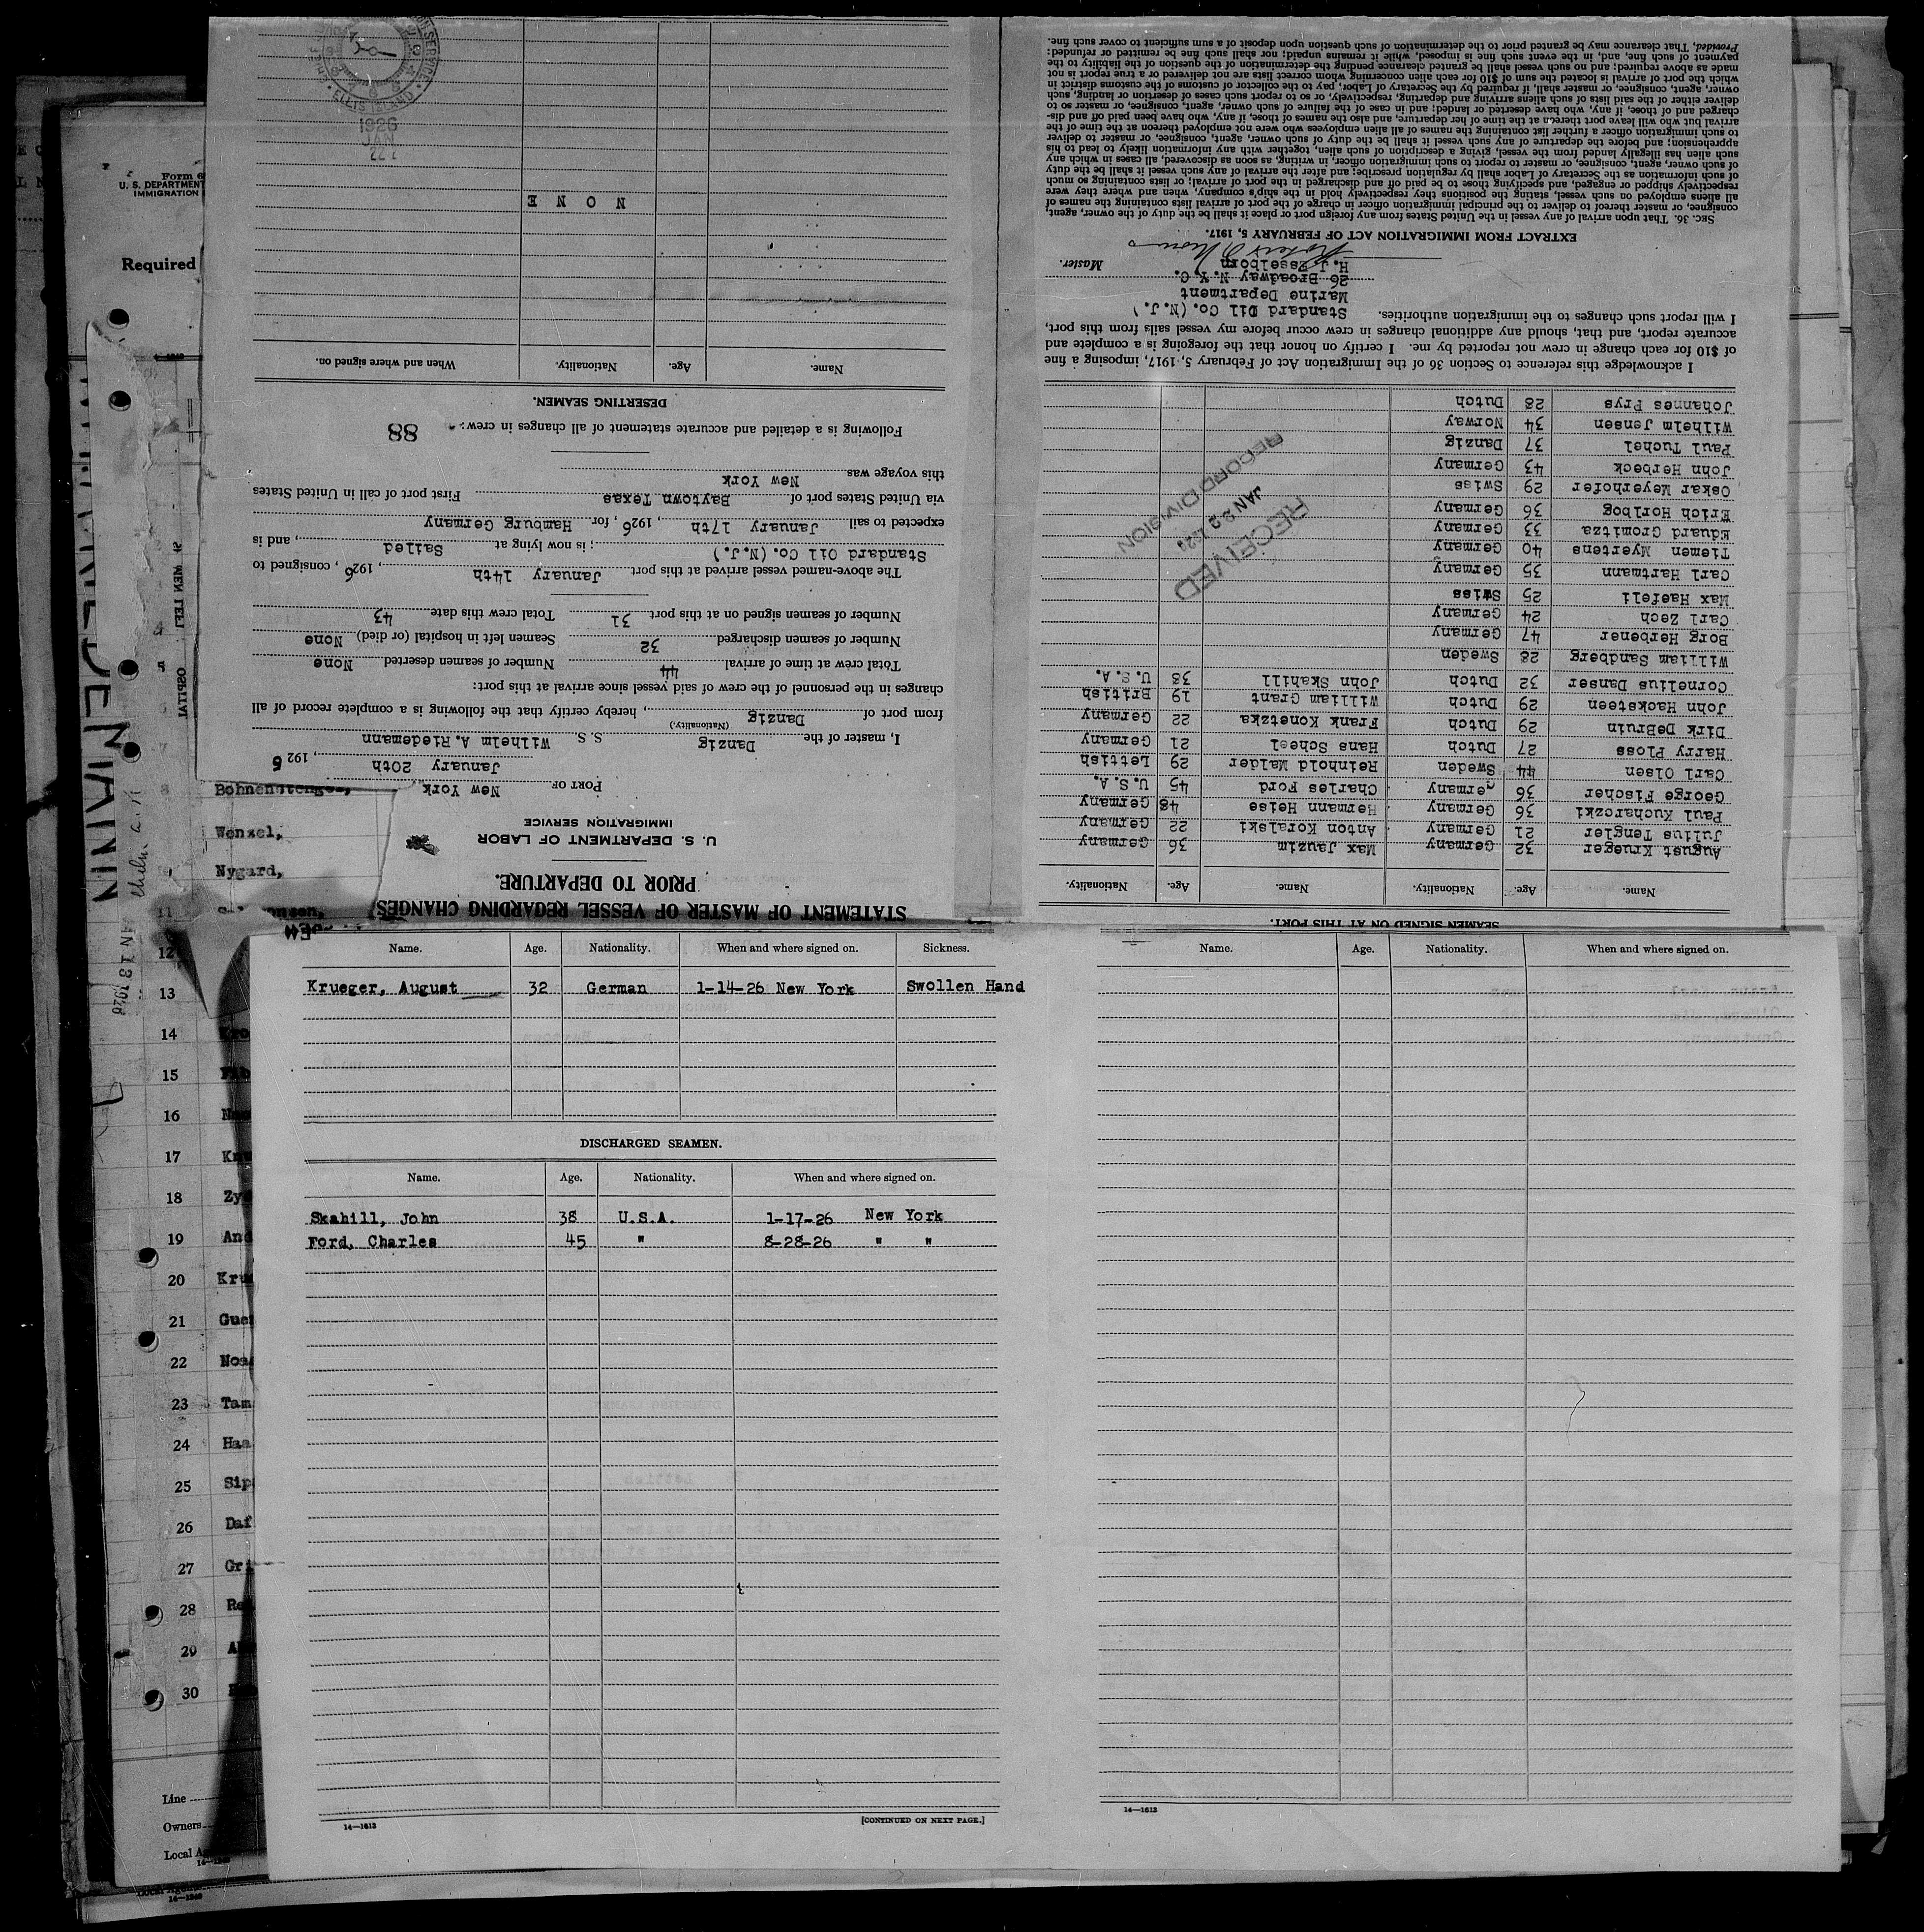 STATEMENT OF MASTER OF VESSEL REGARDING CHANGES
PRIOR TO DEPARTURE.
U. S. DEPARTMENT OF LABOR
IMMIGRATION SERVICE
PORT OF New York,
January 20th, 1926
I, master of the Danzig S.S. Wilhelm A. Riedemann
(Nationality.)
from port of Danzig, hereby certify that the following is a complete record of all
changes in the personnel of the crew of said vessel since arrival at this port:
Total crew at time of arrival 44 Number of seamen deserted None
Number of seamen discharged 32 Seamen left in hospital (or died) None
Number of seamen signed on at this port 31 Total crew this date 43
The above-named vessel arrived at this port January 14th, 1926, consigned to
Standard Oil Co. (N.J.); is now lying at Sailed, and is
expected to sail January 17th, 1926, for Hamburg Germany
via United States port of Baytown Texas First port of call in United States
this voyage was New York
Following is a detailed and accurate statement of all changes in crew: 88
DESERTING SEAMEN.
Name. Age. Nationality. When and where signed on.
N O N E
1926
JAN
22
ELLIS ISLAND
SEAMEN SIGNED ON AT THIS PORT.
Name. Age. Nationality. Name. Age. Nationality.
August Krueger 32 Germany Max Jauzim 36 Germany
Julius Tengler 21 Germany Anton Koralski 22 Germany
Paul Kucharczki 36 Germany Hermann Heise 48 Germany
George Fischer 36 Germany Charles Ford 45 U.S.A.
Carl Olsen 44 Sweden Reinhold Malder 29 Lettish
Harry Ploss 27 Dutch Hans Scheel 21 Germany
Dirk DeBruin 29 Dutch Frank Konetzka 22 Germany
John Hacksteen 29 Dutch William Grant 19 British
Cornelius Danser 32 Dutch John Skahill 38 U.S.A.
William Sandberg 28 Sweden
Borg Herbener 47 Germany
Carl Zech 24 Germany
Max Haefeli 25 Swiss
Carl Hartmann 35 Germany
Tiemen Myertens 40 Germany
Eduard Gromitza 33 Germany
Erich Horlbog 36 Germany
Oskar Meyerhofer 29 Swiss
John Herbeck 43 Germany
Paul Tuchel 37 Danzig
Wilhelm Jensen 34 Norway
Johannes Prys 28 Dutch
RECEIVED
JAN 22
RECORD DIVISION
I acknowledge this reference to Section 36 of the Immigration Act of February 5, 1917, imposing a fine
of $10 for each change in crew not reported by me. I certify on honor that the foregoing is a complete and
accurate report, and that, should any additional changes in crew occur before my vessel sails from this port,
I will report such changes to the immigration authorities.
Standard Oil Co. (N.J.)
Marine Department
26 Broadway N.Y.C.
H.J. Esselborn Master.
EXTRACT FROM IMMIGRATION ACT OF FEBRUARY 5, 1917.
SEC. 36. That upon arrival of any vessel in the United States from any foreign port or place it shall be the duty of the owner, agent,
consignee, or master thereof to deliver to the principal immigration officer in charge of the port of arrival lists containing the names of
all aliens employed on such vessel, stating the positions they respectively hold in the ship's company, when and where they were
respectively shipped or engaged, and specifying those to be paid off and discharged in the port of arrival; or lists containing so much
of such information as the Secretary of Labor shall by regulation prescribe; and after the arrival of any such vessel it shall be the duty
of such owner, agent, consignee, or master to report to such immigration officer, in writing, as soon as discovered, all cases in which any
such alien has illegally landed from the vessel, giving a description of such alien, together with any information likely to lead to his
apprehension; and before the departure of any such vessel it shall be the duty of such owner, agent, consignee, or master to deliver
to such immigration officer a further list containing the names of all alien employees who were not employed thereon at the time of the
arrival but who will leave port thereon at the time of her departure, and also the names of those, if any, who have been paid off and dis-
charged and of those, if any, who have deserted or landed; and in case of the failure of such owner, agent, consignee, or master so to
deliver either of the said lists of such aliens arriving and departing, respectively, or so to report such cases of desertion or landing, such
owner, agent, consignee, or master, shall, if required by the Secretary of Labor, pay to the collector of customs of the customs district in
which the port of arrival is located the sum of $10 for each alien concerning whom correct lists are not delivered or a true report is not
made as above required; and no such vessel shall be granted clearance pending the determination of the question of the liability to the
payment of such fine, and, in the event such fine is imposed, while it remains unpaid; nor shall such fine be remitted or refunded:
Provided, That clearance may be granted prior to the determination of such question upon deposit of a sum sufficient to cover such fine.
Form 6
U. S. DEPARTMENT
IMMIGRATION
Required
Bohnenstengel,
Wenzel,
Nygard,
11
12
13
14
15
16
17
18
19
20
21
22
23
24
25
26
27
28
29
30
Line
Owners
Local
Name. Age. Nationality. When and where signed on. Sickness.
Krueger, August 32 German 1-14-26 New York Swollen Hand
DISCHARGED SEAMEN.
Name. Age. Nationality. When and where signed on.
Skahill, John 38 U.S.A. 1-17-26 New York
Ford, Charles 45 " 8-28-26 " "
14—1613
[CONTINUED ON NEXT PAGE.]
Name. Age. Nationality. When and where signed on.
14—1613